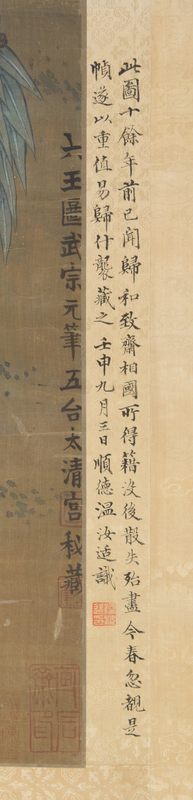 此圖十餘年前已聞歸和致齋相國所得籍沒後散失殆盡今春忽覩是
幀遂以重值易歸什襲藏之壬申九月三日順德溫汝适識
六王匡武宗元筆五台太清宮秘藏